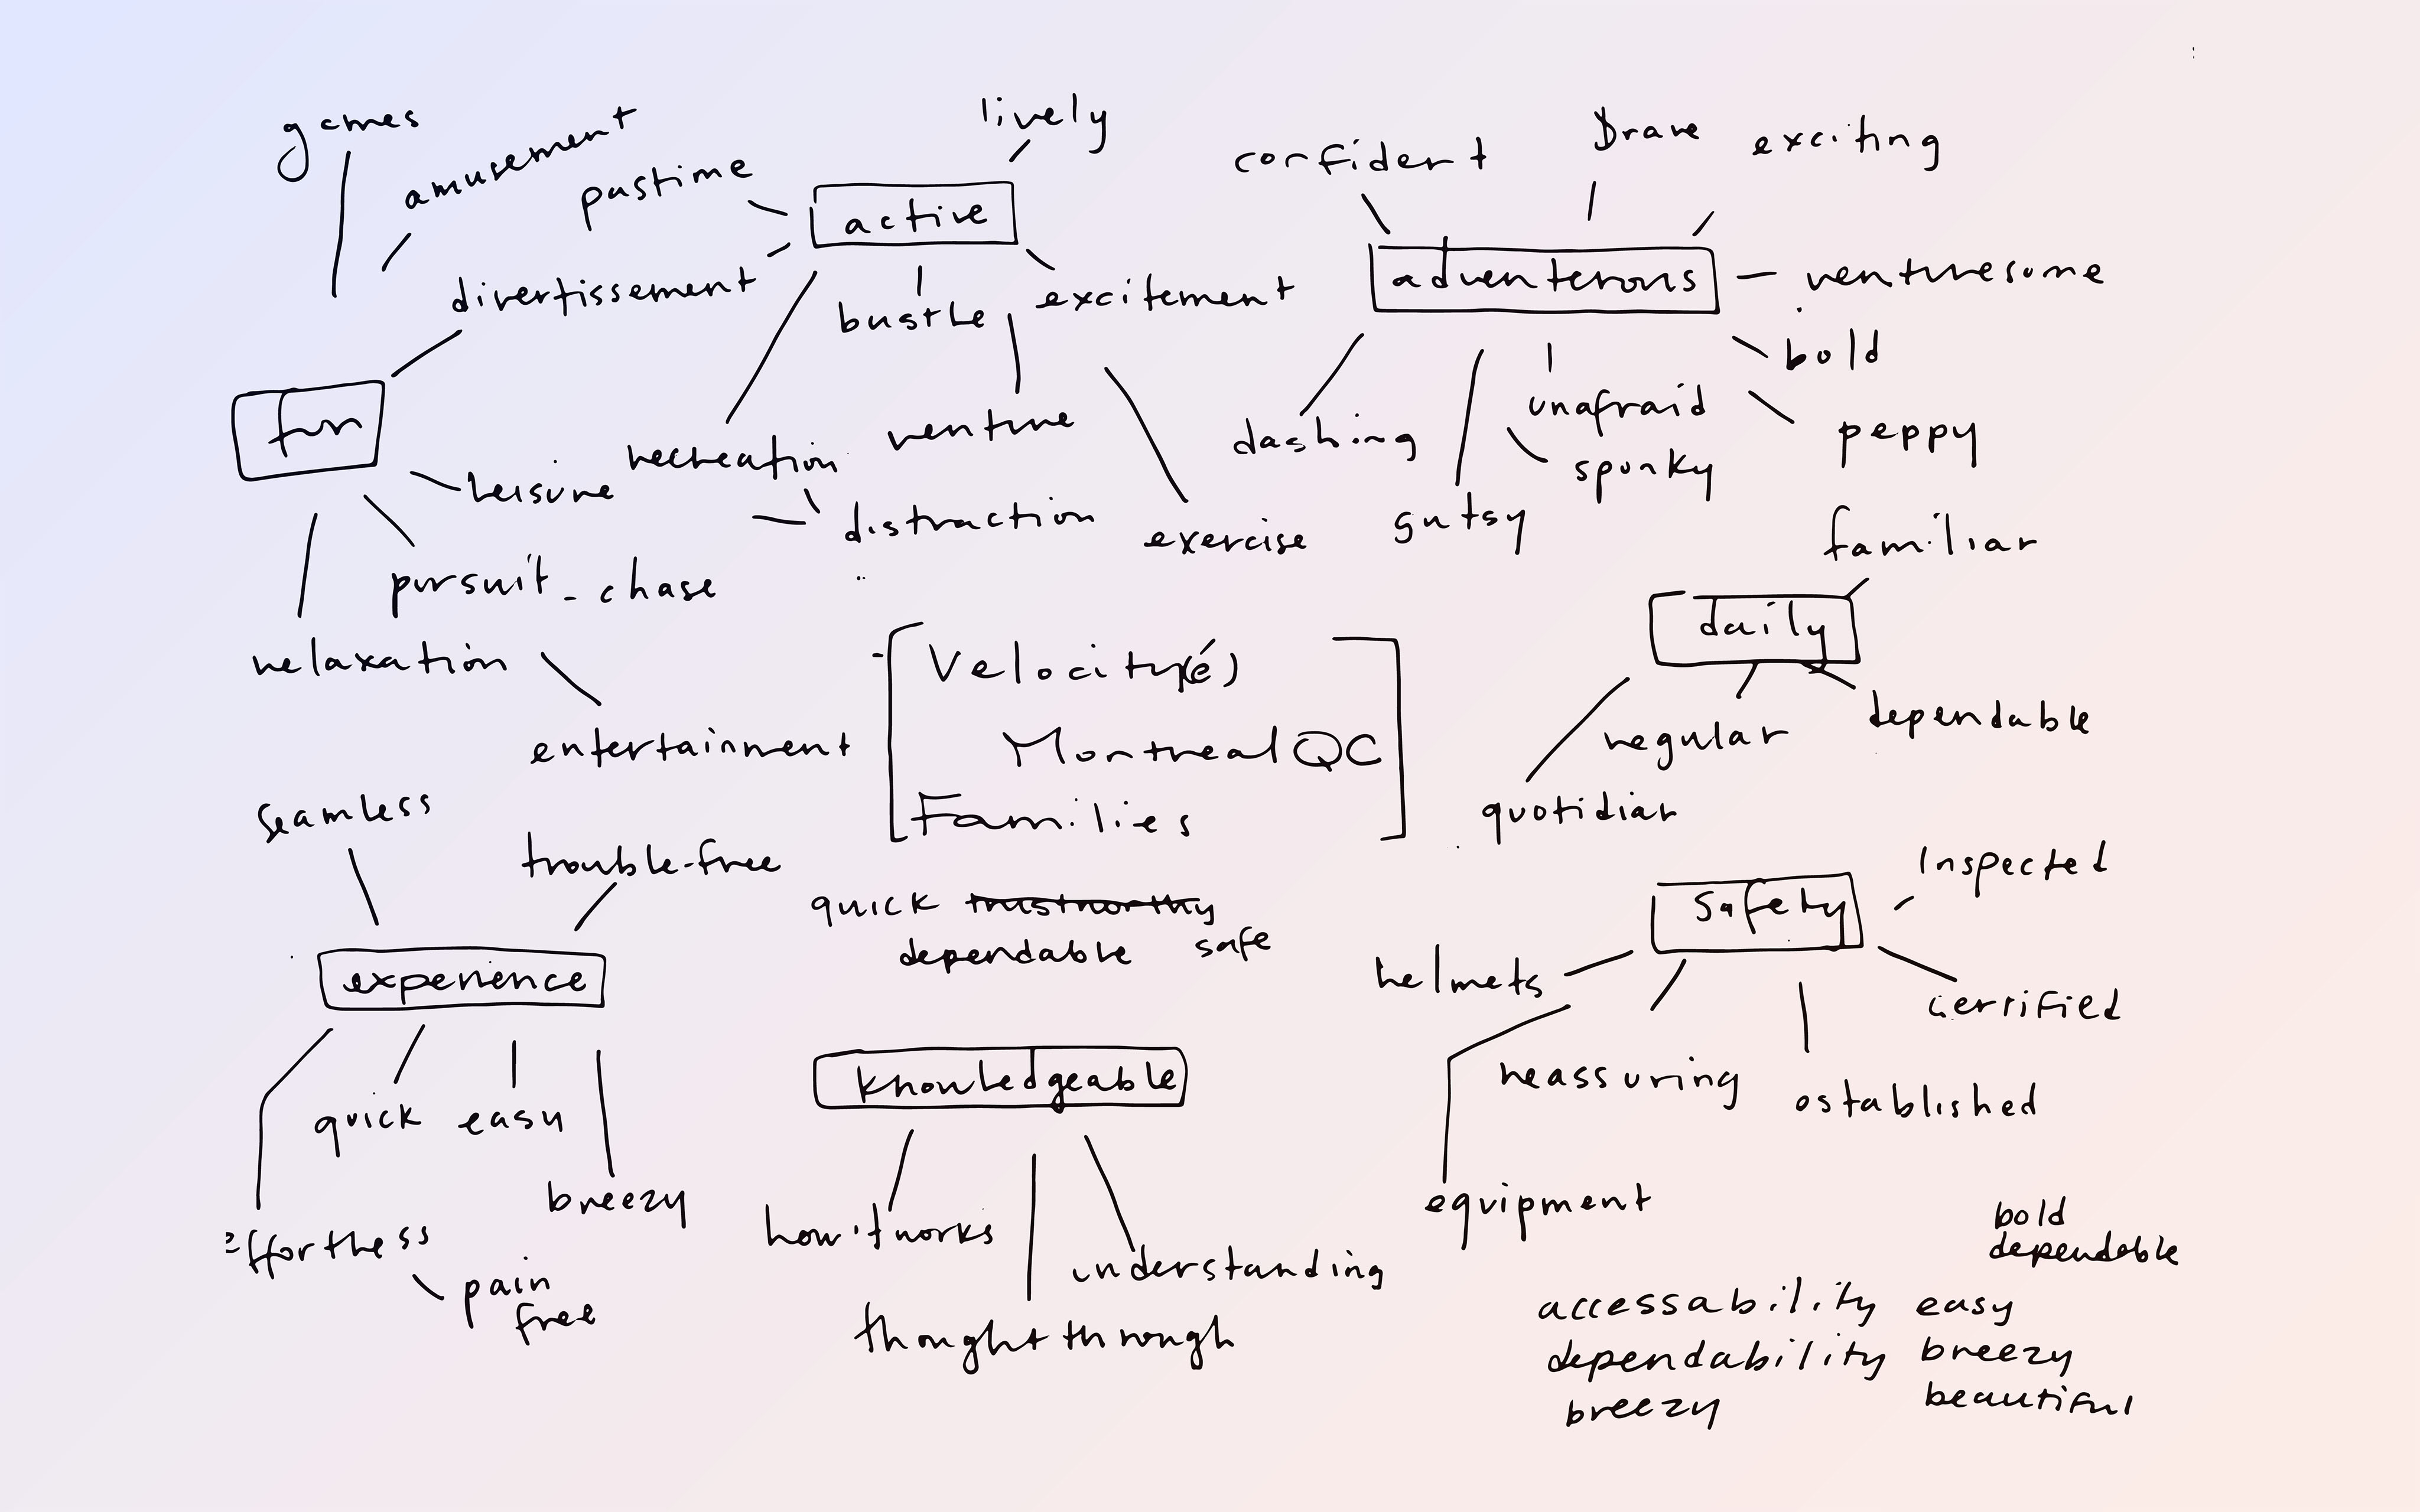 games
amusement
pastime
lively
active
divertissement
bustle
excitement
confident
Brave
exciting
adventerous
venturesome
bold
peppy
unafraid
spunky
dashing
gutsy
fun
leisure
recreation
venture
distraction
exercise
pursuit - chase
relaxation
entertainment
familiar
daily
dependable
regular
quotidian
Velocity(é)
Montreal QC
Families
quick trustworthy
dependable safe
seamless
trouble-free
experience
quick easy
breezy
effortless
pain
free
knowledgeable
how it works
understanding
thought through
Inspected
Safety
helmets
certified
reassuring
established
equipment
bold
dependable
accessability easy
dependability breezy
breezy beautiful